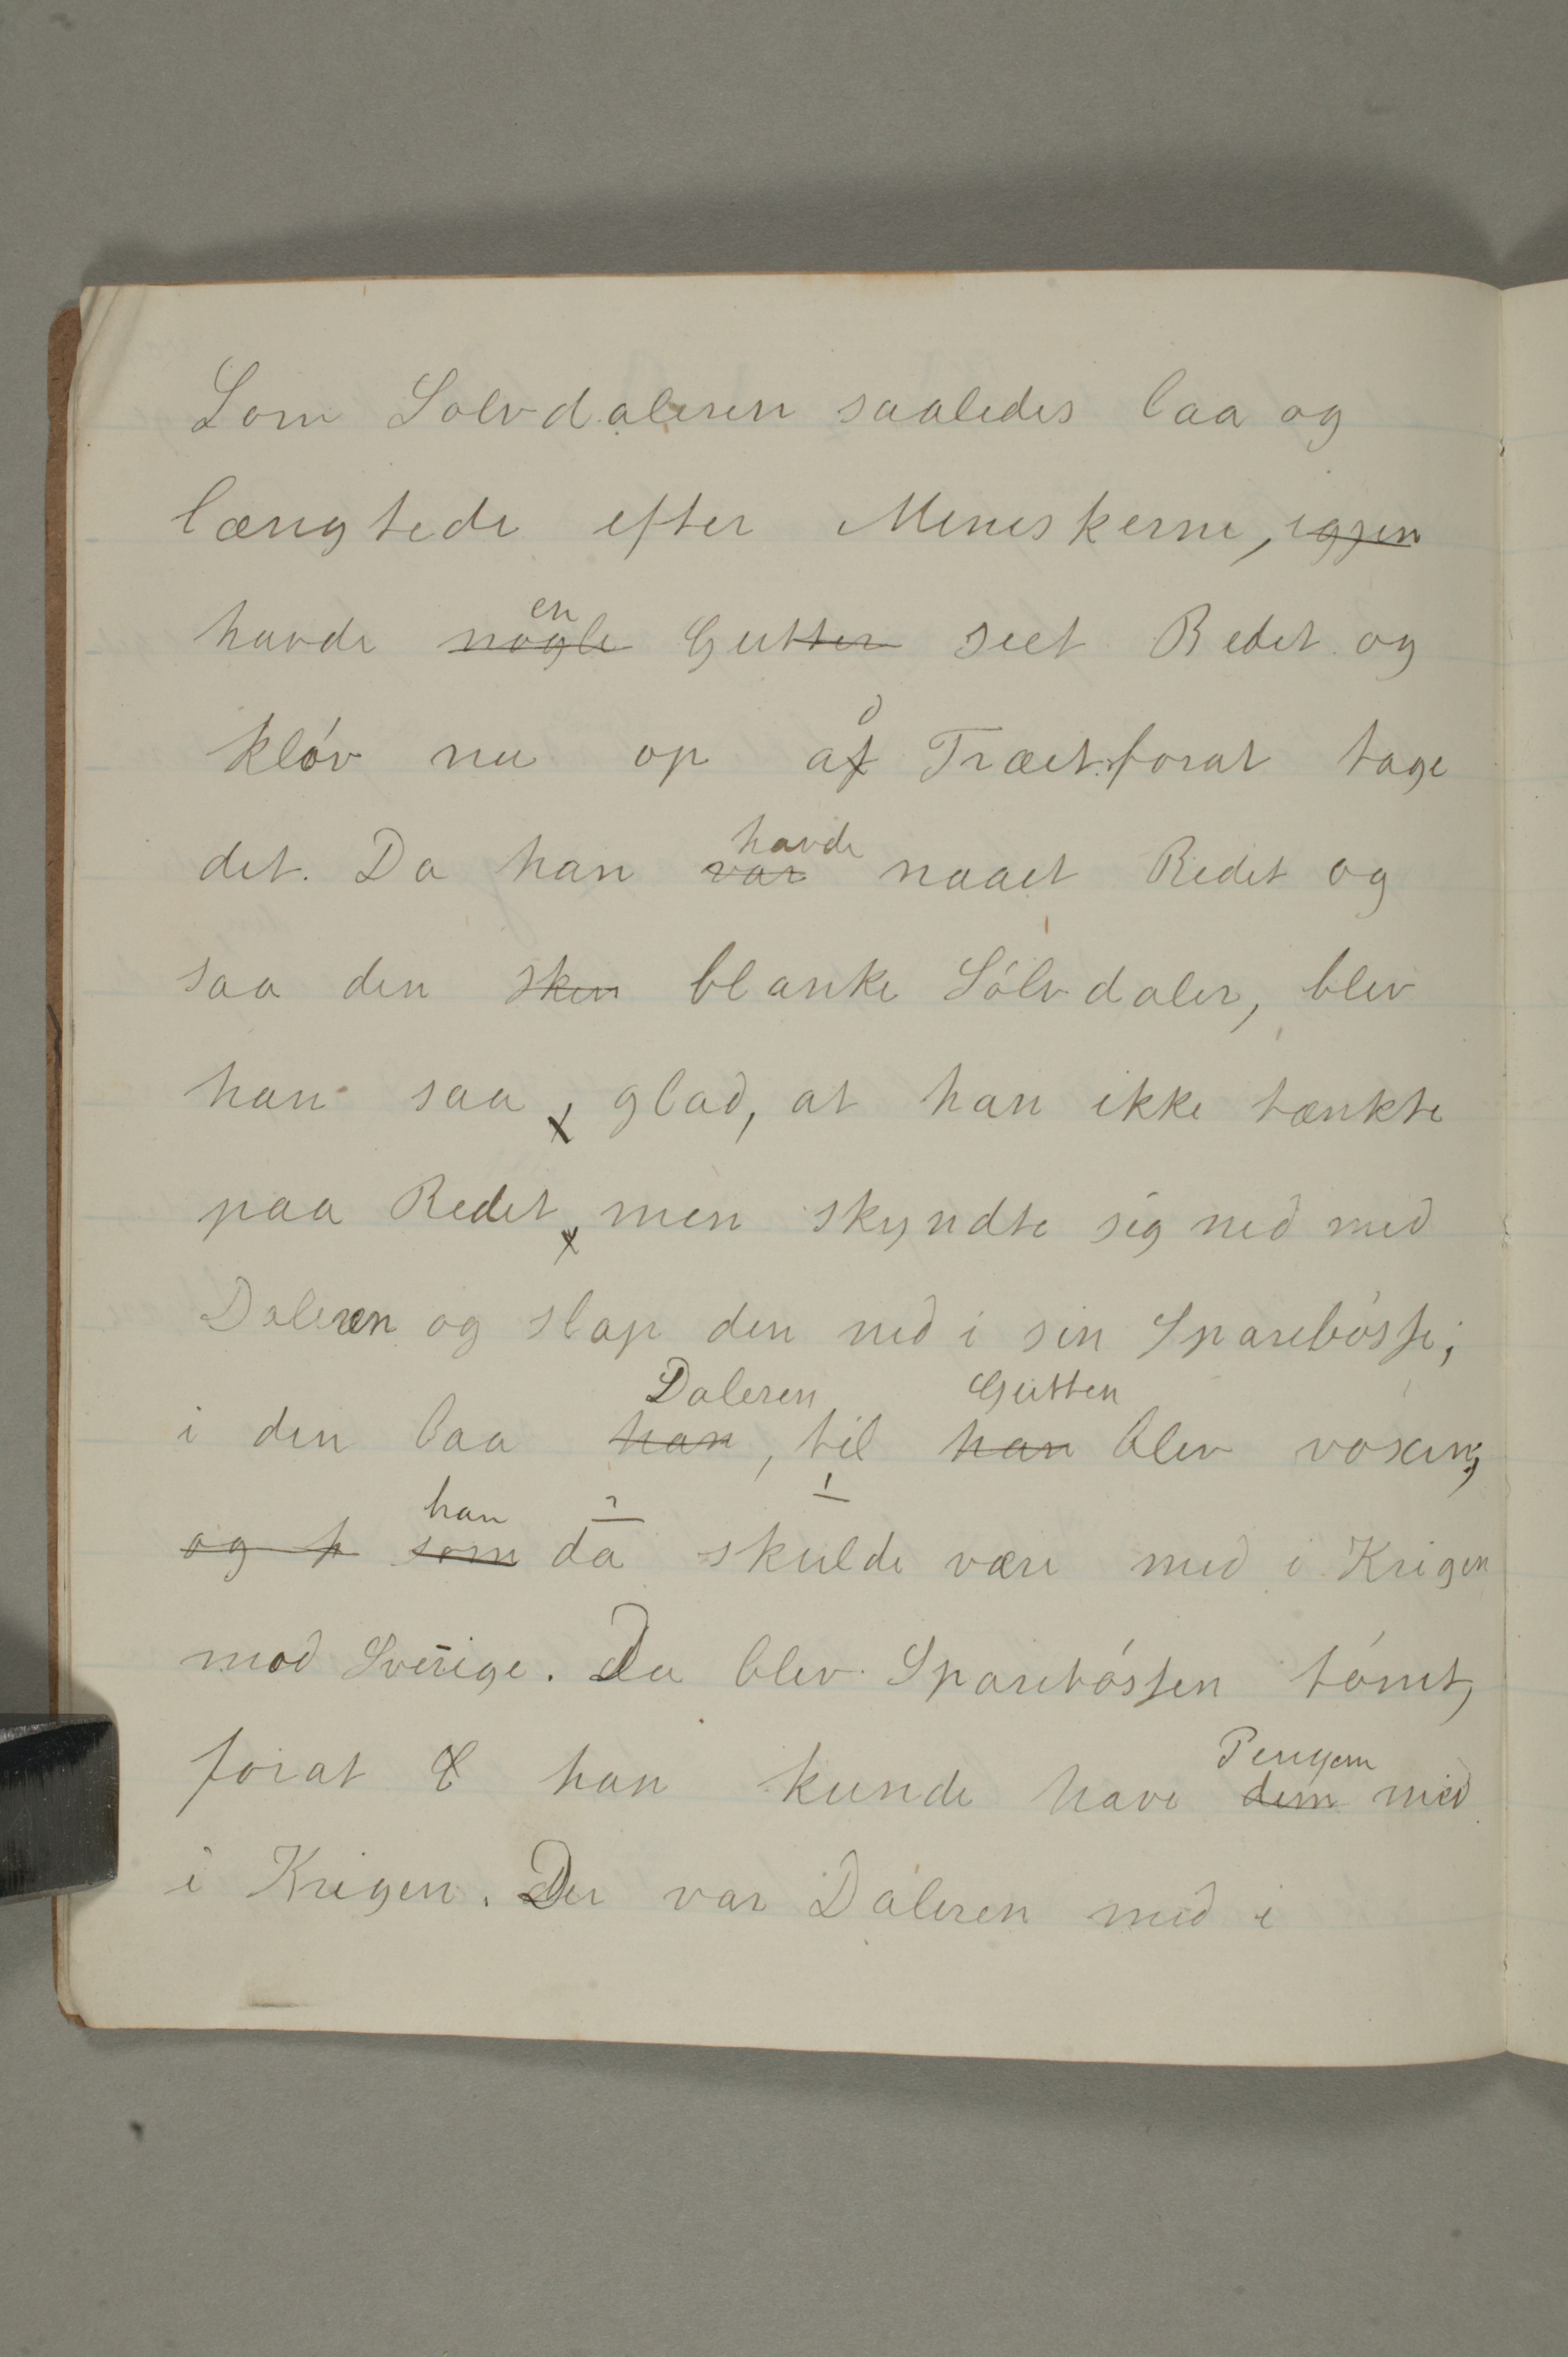 Som Solvdaleren saaledes laa og
længtede efter Meneskerne, igjen
havde nogle en Gutter seet Redet og
kløv nu op af d Træet forat tage
det. Da han var havde naaet Redet og
saa den sken blanke Sólvdaler, blev
han saa, glad, at han ikke tænkte
paa Redet, men skyndte sig ned med
Daleren og slap den ned i sin Sparebósse;
i den laa han Daleren, til han Gutten blev voxen,
og h som han da skulde være med i Krigen
mod Sverige. Da blev Sparebóssen tómt,
forat han kunde have dem Pengene med
i Krigen. Der var Daleren med i